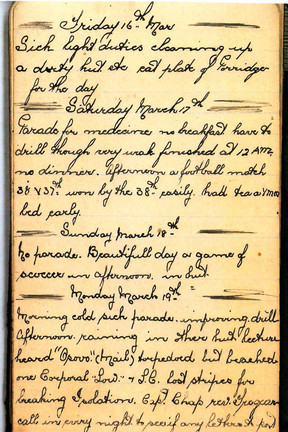 Friday 16th Mar
Sick light duties cleaning up
a dirty hut etc eat plate of Porridge
for the day
Saturday March 17th
Parade for medecine no breakfast have to
drill though very weak finished at 12 AM
no dinner. Afternoon a football match
38 V 37th won by the 38th easily. had tea a
bed early.
Sunday March 18th
No parade. Beautifull day a game of
soccer in afternoon. in hut.
Monday March 19th
Morning cold sick parade. improving. drill
Afternoon raining in other hut lecture
heard (Mails) torpedoed but beached
one Corporal & L.C. lost stripes for
breaking Isolation. Capt. Chap rev.
calls in every night to see if any letters to post